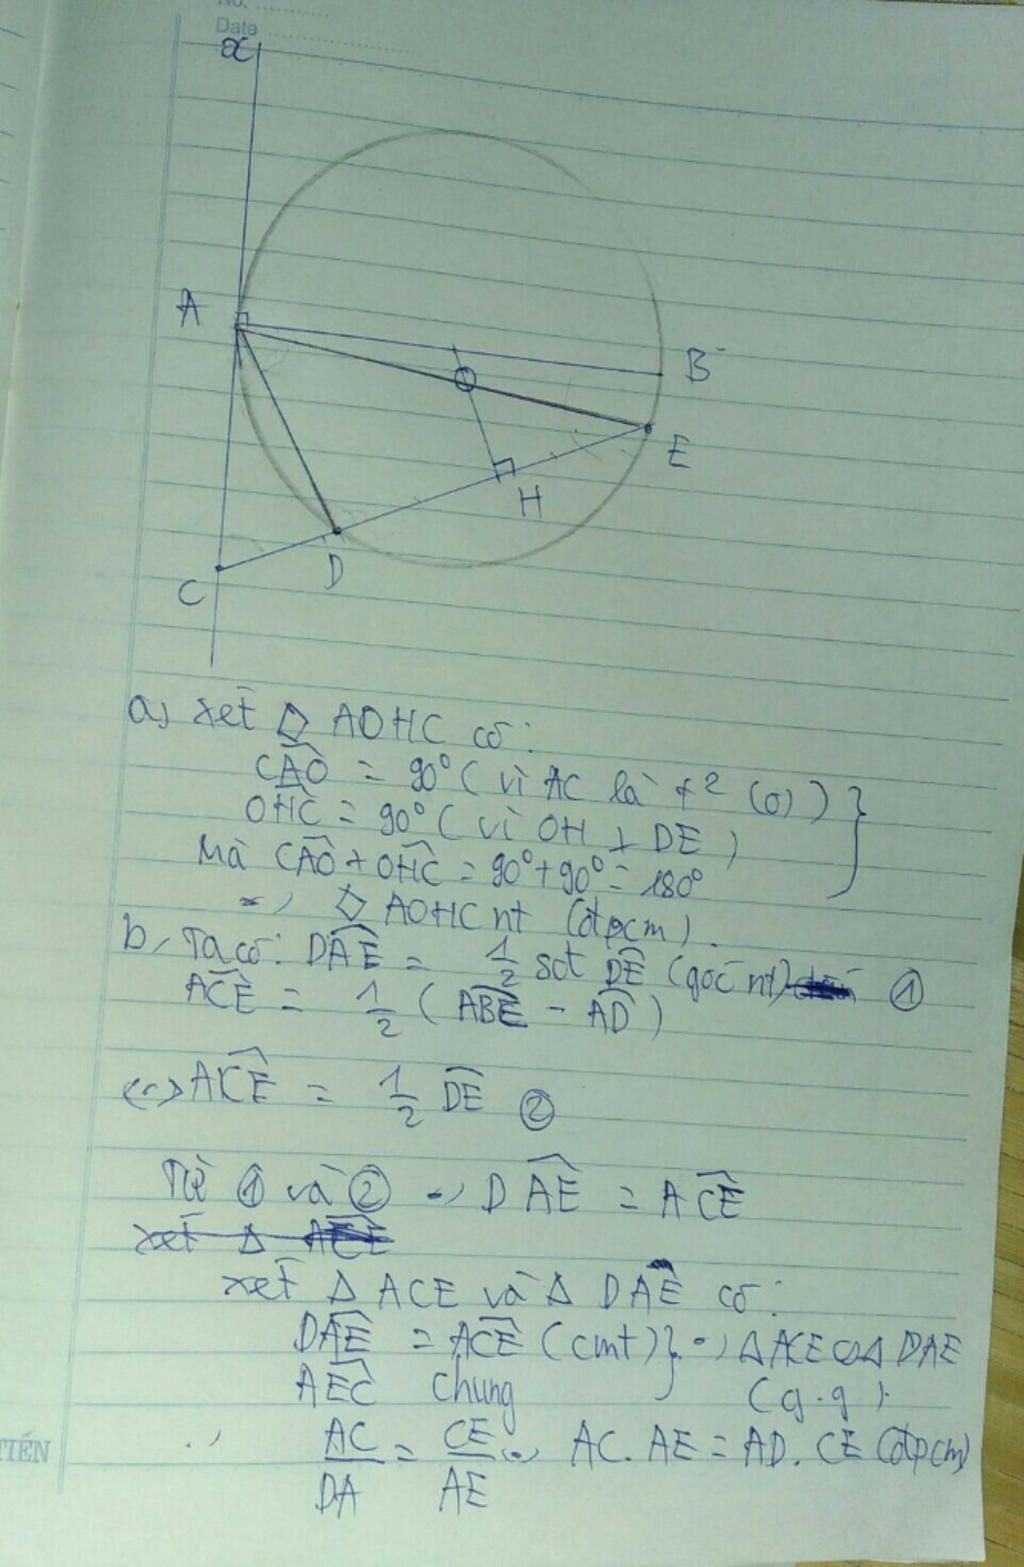 No. ............
Date ........................
x
A
B
O
E
H
D
C
a) xét ◇ AOHC có:
CÂO = 90° (vì AC là t² (O))
OĤC = 90° (vì OH ⊥ DE)
Mà CÂO + OĤC = 90° + 90° = 180°
=> ◇ AOHC nt (đpcm).
b, Ta có: DÂE = 1/2 sđ DE (góc nt) ①
AĈE = 1/2 (ABE - AD)
<=> AĈE = 1/2 DE ②
Từ ① và ② => DÂE = AĈE
xét Δ ACE
xét Δ ACE và Δ DAE có:
DÂE = AĈE (cmt) } => Δ ACE ∽ Δ DAE
AÊC chung (g.g).
TIẾN
=> AC/DA = CE/AE => AC. AE = AD. CE (đpcm)